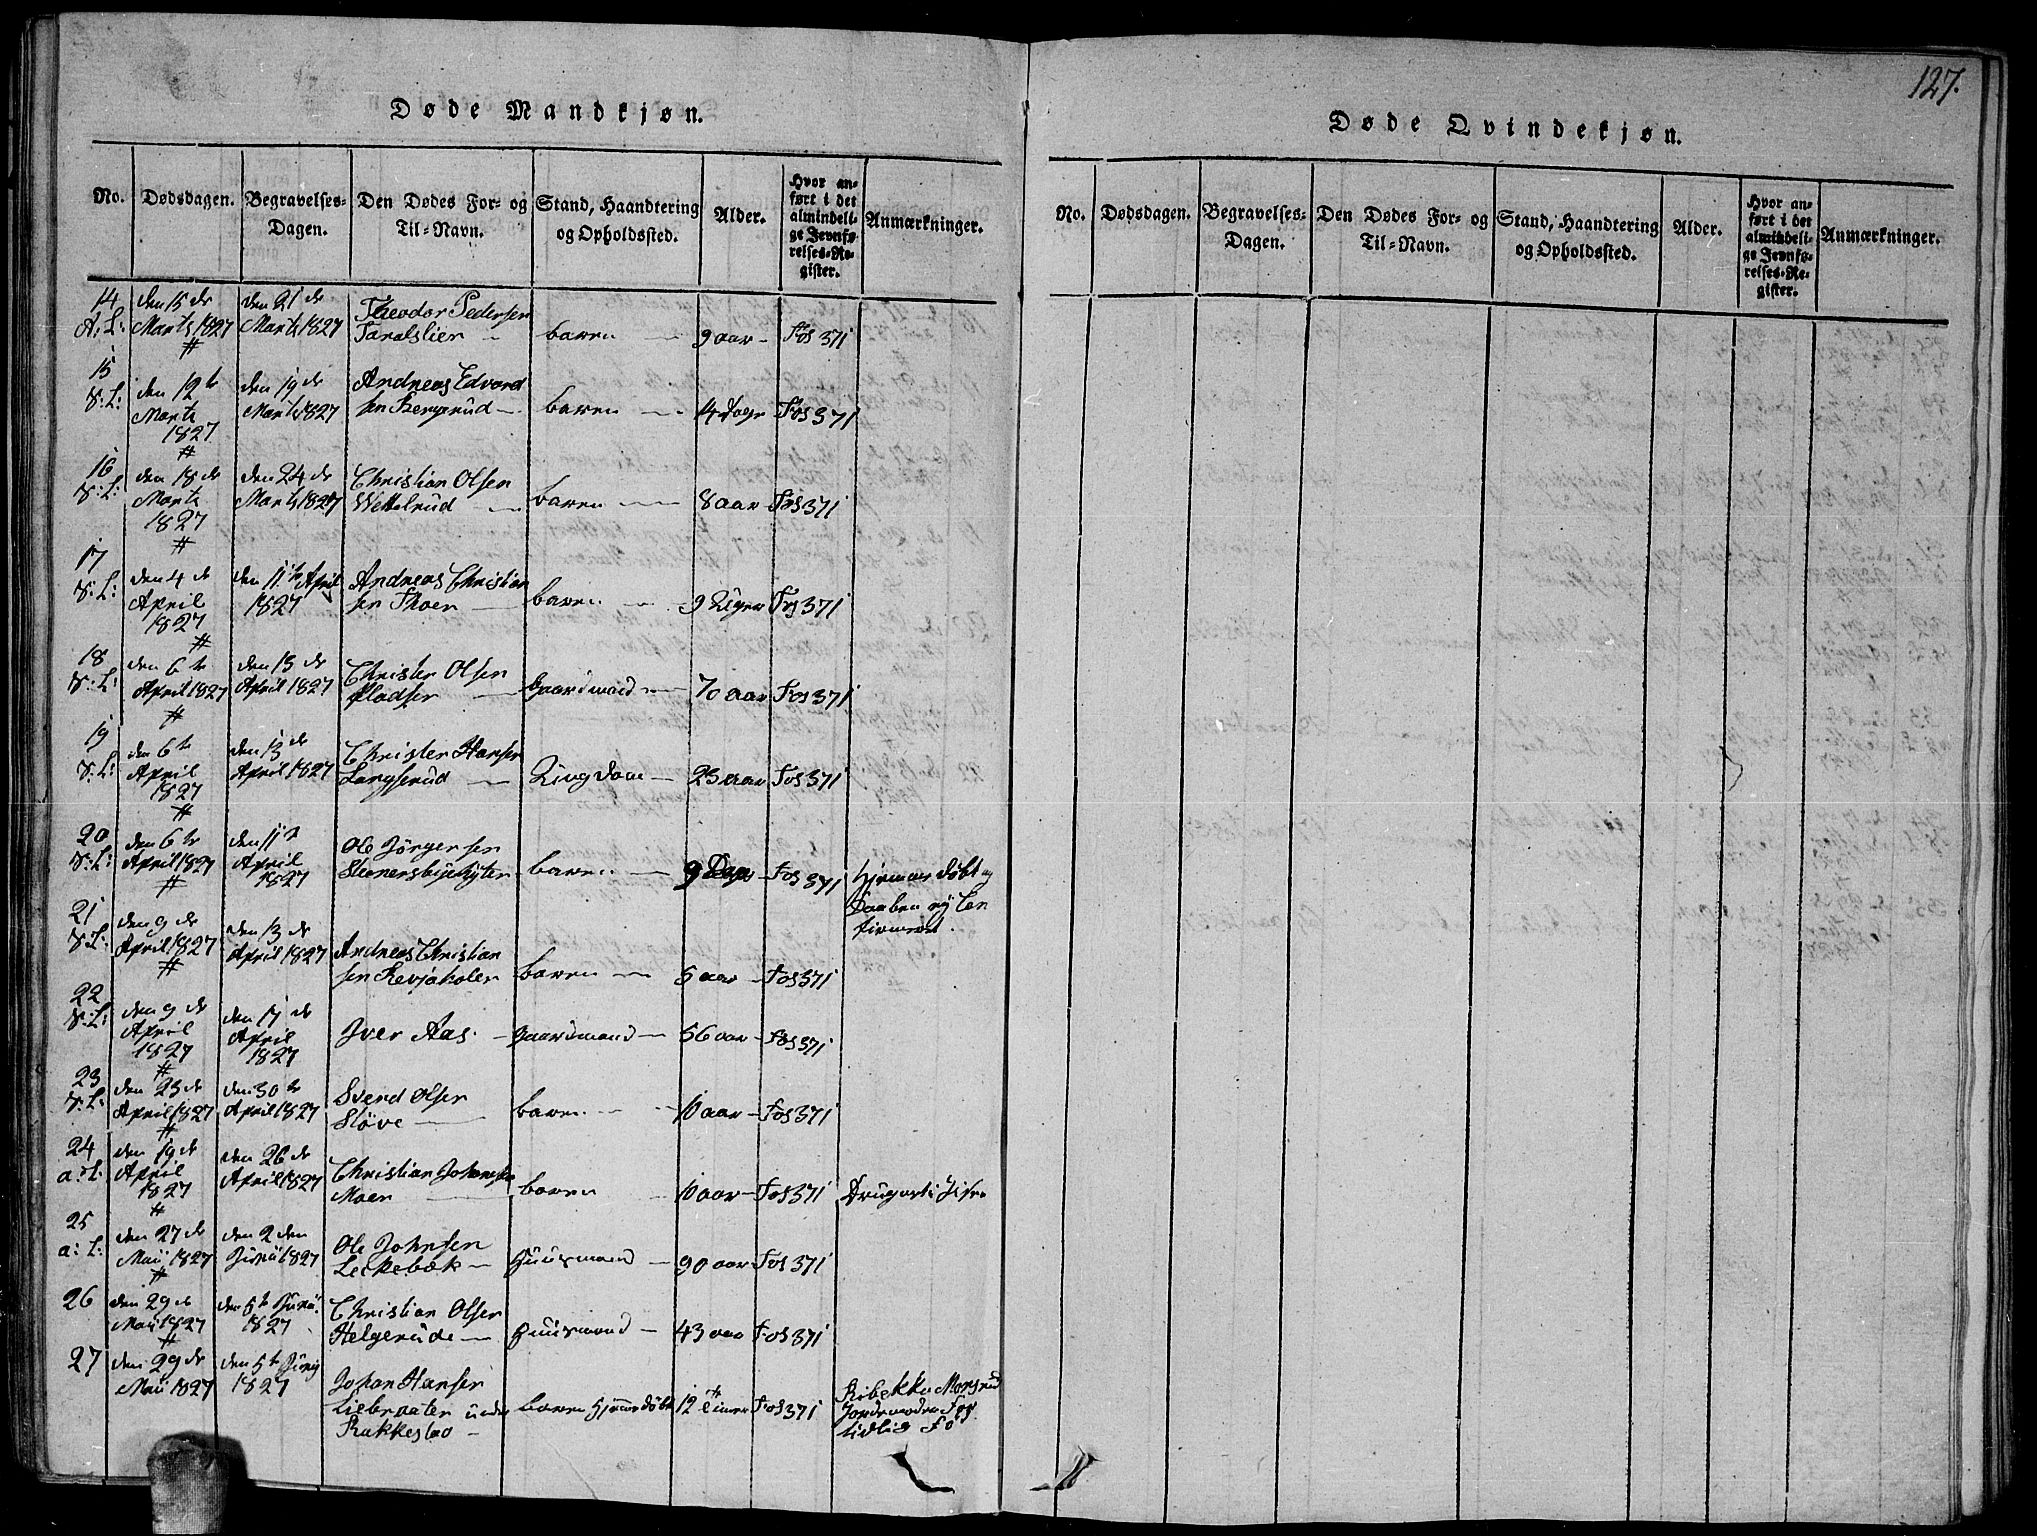 127.
Døde Mandkjøn.
No.
Dødsdagen.
Begravelses-
Dagen.
Den Dødes For- og
Til-Navn.
Stand, Haandtering
og Opholdssted.
Alder.
Hvor an-
ført i det
almindeli-
ge Jevnfø-
relses-Re-
gister.
Anmærkninger.
14
A: L:
den 15 de
Marts 1827
#
den 21 de
Marts 1827
Theodor Pedersen
baren
9 aar
Fos 371
15
S: L:
den 12 te
Marts
1827
#
den 19 de
Marts 1827
Andreas Edvard
sen
baren
14 Dage
Fos 371
16
S: L:
den 18 de
Marts
1827
#
den 24 de
Marts 1827
Christian Olsen
Wettelrud
baren
8 aar
Fos 371
17
S: L:
den 4 de
April
1827
#
den 11 te April
1827
Andreas Christian
sen Moer
baren
9 Uger
Fos 371
18
S: L:
den 6 te
April 1827
#
den 13 de
April 1827
Christen Olsen
Gaardmand
70 aar
Fos 371
19
S: L:
den 6 te
April
1827
#
den 13 de
April 1827
Christen Hansen
Langserud
23 aar
Fos 371
20
S: L:
den 6 te
April 1827
#
den 11 te
April
1827
Ole Jörgensen
baren
9 Dage
Fos 371
hjemme döbt og
Daaben ey Con
firmeret.
21
S: L:
den 9 de
April 1827
#
den 13 de
April 1827
Andreas Christian
sen
baren
5 aar
Fos 371
22
S: L:
den 9 de
April
1827
#
den 17 de
April
1827
Iver Aas.
Gaardmand
56 aar
Fos 371
23
S: L:
den 23 de
April 1827
#
den 30 te
April 1827
Svend Olsen
Slöve
baren
10 aar
Fos 371
24
a: L:
den 19 de
April
1827
#
den 26 de
April 1827
Christian Johansen
Moen
baren
10 aar
Fos 371
25
a: L:
den 27 de
Maii 1827
#
den 2 den
Junii 1827
Ole Johnsen
Leckebæk
Huusmand
90 aar
Fos 371
26
den 29 de
Maii 1827
#
den 5 te Junii
1827
Christian Olsen
Helgerude
Huusmand
43 aar
Fos 371
27
den 29 de
Maii 1827
den 5 te Junij
1827
Johan Hansen
Liebraaten under
Rakkestad
baren hjemmedöbt
12 Timer
Fos 371
Ribekka
Jordemoder For
tidlig Fö
Døde Qvindekjøn.
No.
Dødsdagen.
Begravelses-
Dagen.
Den Dødes For- og
Til-Navn.
Stand, Haandtering
og Opholdssted.
Alder.
Hvor an-
ført i det
almindeli-
ge Jevnfø-
relses-Re-
gister.
Anmærkninger.